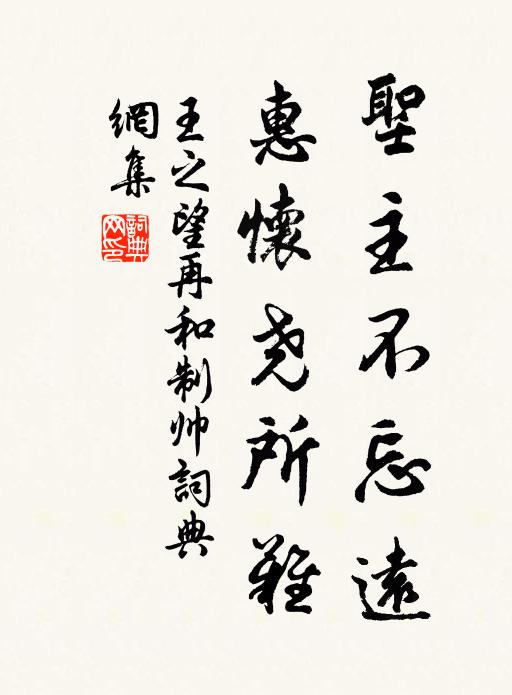 聖主不忘遠
惠懷尧所難
王之望再和制帅詞典
網集
詞典網印